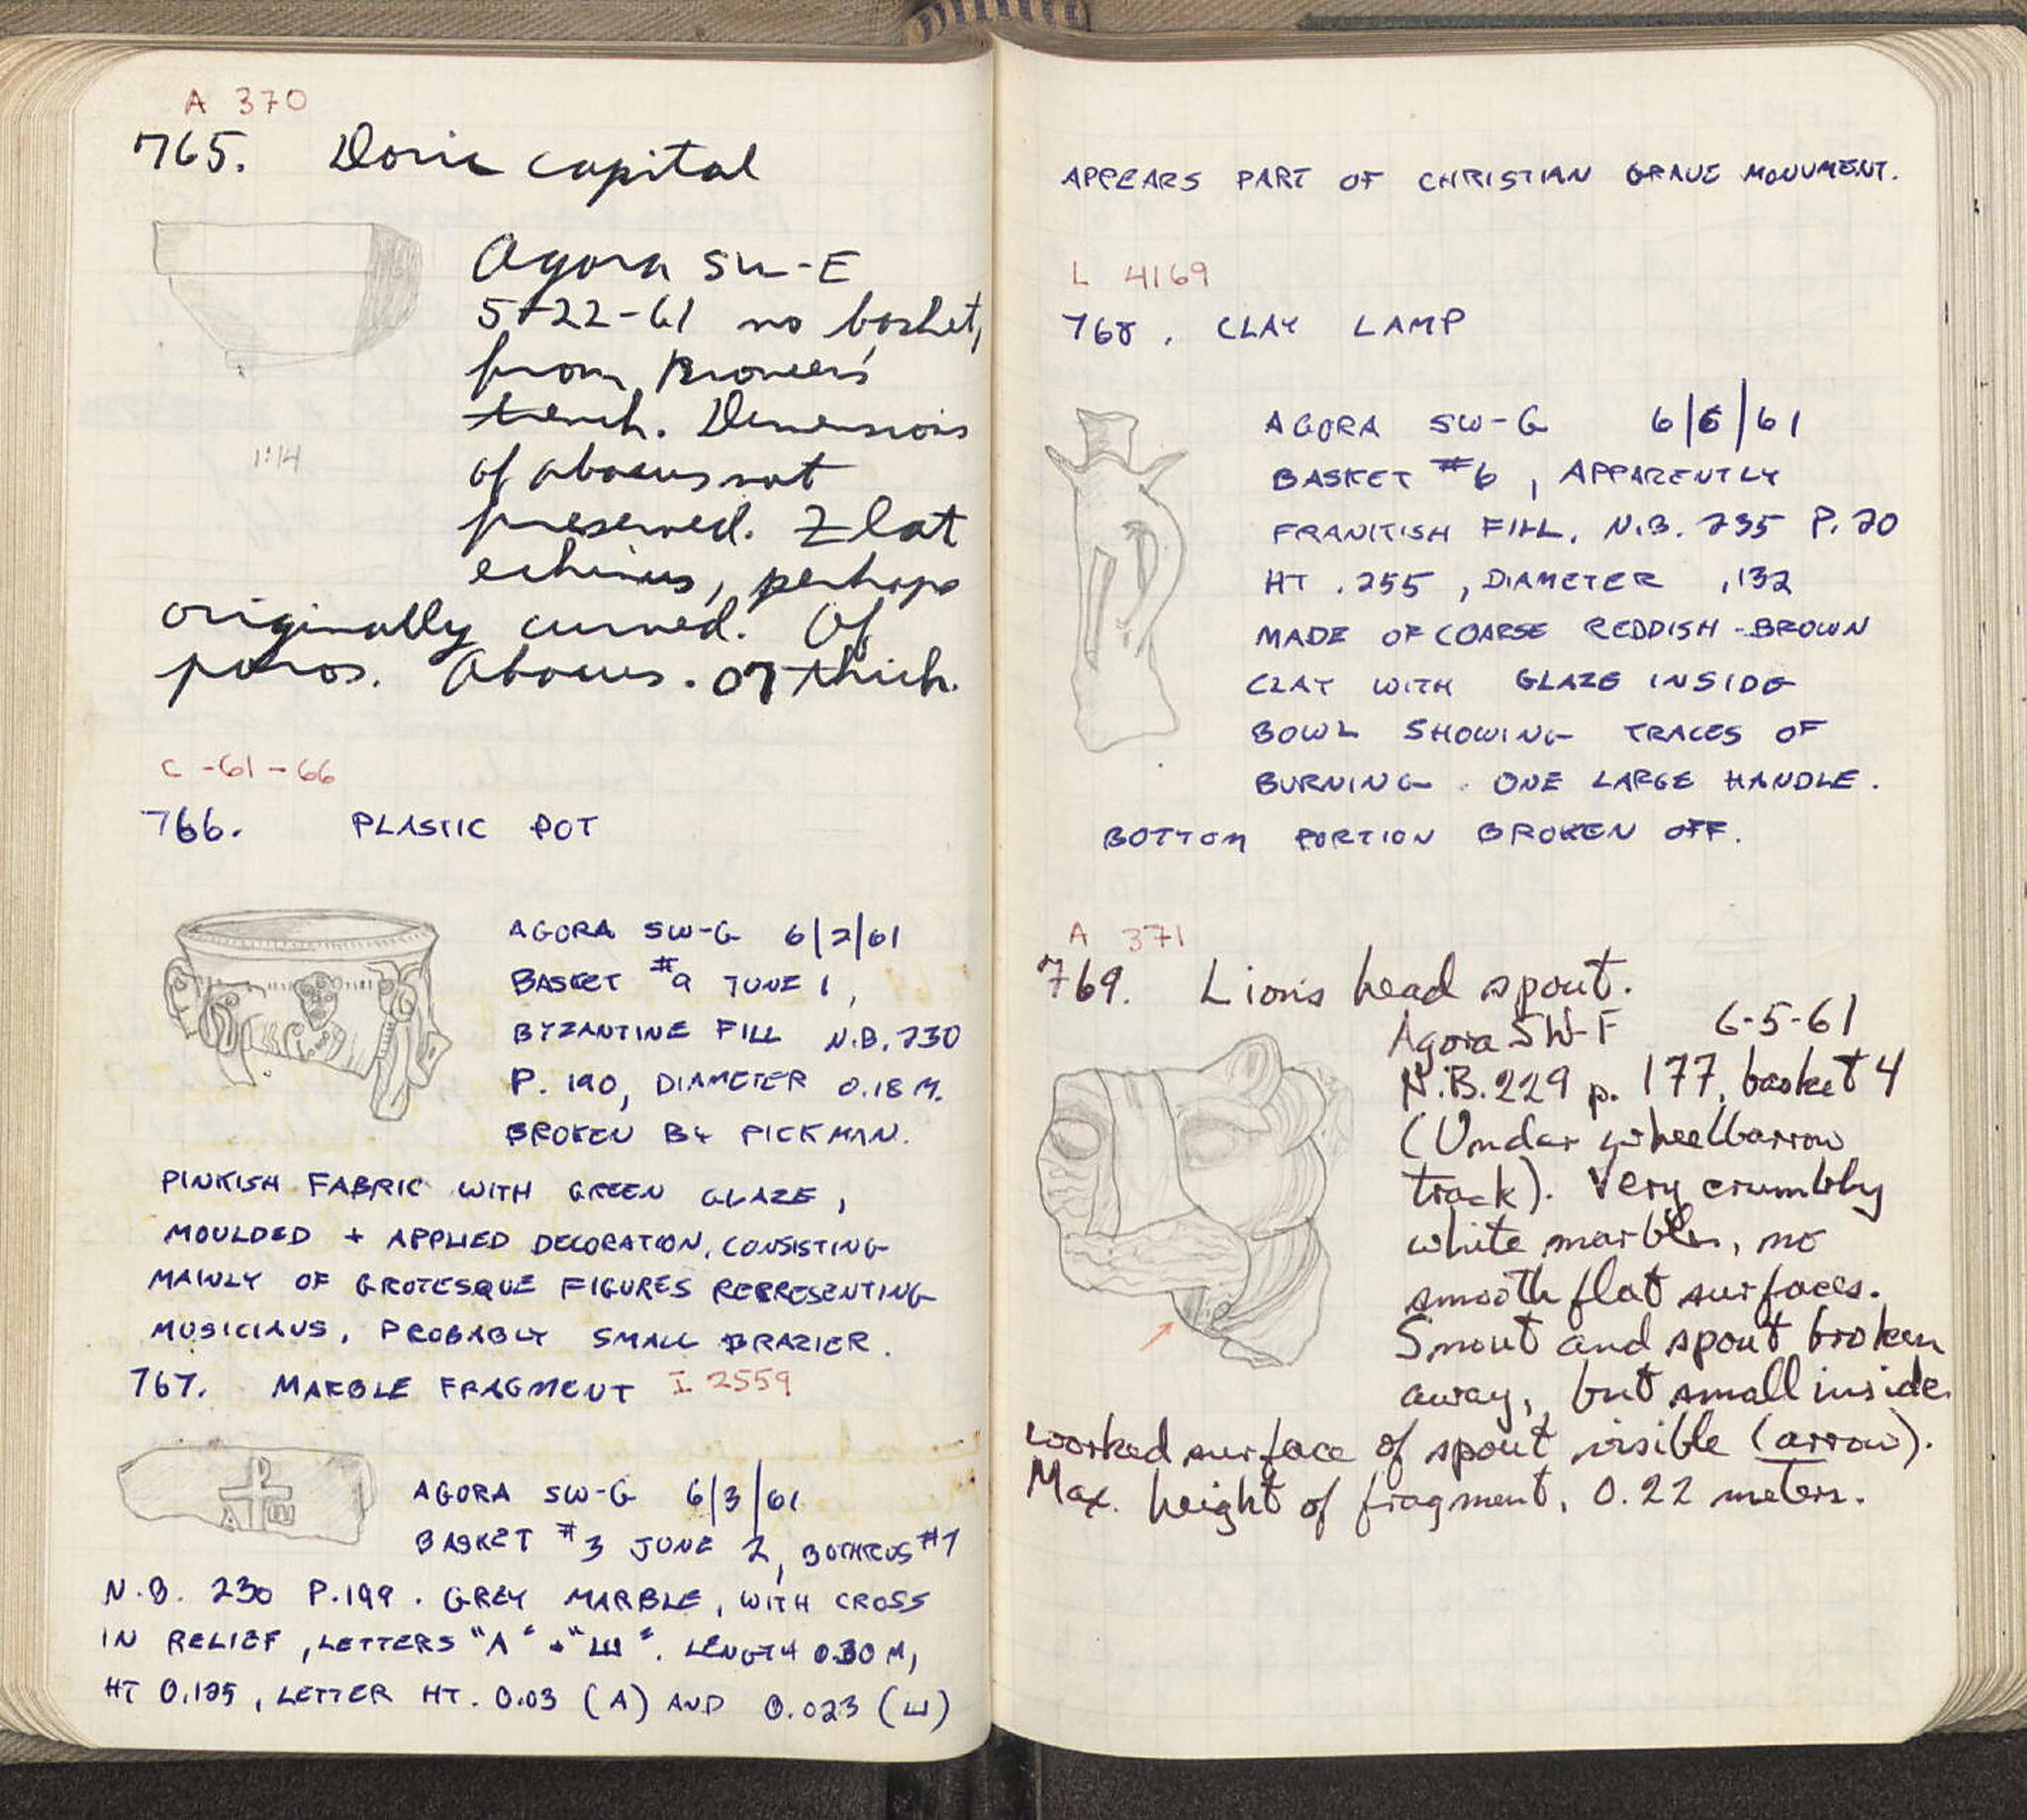 A 370
765. Doric capital
Agora SW-E
5-22-61 no basket,
from Broneer's
trench. Dimensions
of abacus not
preserved. Flat
echinus, perhaps
originally curved. Of
poros. Abacus .07 thick.
1:14
C-61-66
766. PLASTIC POT
AGORA SW-G 6/2/61
BASKET #9 JUNE 1,
BYZANTINE FILL N.B. 230
P. 190, DIAMETER 0.18 M.
BROKEN BY PICKMAN.
PINKISH FABRIC WITH GREEN GLAZE,
MOULDED + APPLIED DECORATION, CONSISTING
MAINLY OF GROTESQUE FIGURES REPRESENTING
MUSICIANS, PROBABLY SMALL BRAZIER.
767. MARBLE FRAGMENT I 2559
P
A Ш
AGORA SW-G 6/3/61
BASKET #3 JUNE 2, BOTHROS #1
N.B. 230 P.199. GREY MARBLE, WITH CROSS
IN RELIEF, LETTERS "A" + "Ш". LENGTH 0.30 M,
HT 0.195, LETTER HT. 0.03 (A) AND 0.023 (Ш)
APPEARS PART OF CHRISTIAN GRAVE MONUMENT.
L 4169
768. CLAY LAMP
AGORA SW-G 6/6/61
BASKET #6, APPARENTLY
FRANITISH FILL. N.B. 235 P. 20
HT .255, DIAMETER .132
MADE OF COARSE REDDISH-BROWN
CLAY WITH GLAZE INSIDE
BOWL SHOWING TRACES OF
BURNING. ONE LARGE HANDLE.
BOTTOM PORTION BROKEN OFF.
A 371
769. Lion's head spout.
Agora SW-F 6-5-61
N.B. 229 p. 177, basket 4
(Under wheelbarrow
track). Very crumbly
white marble, no
smooth flat surfaces.
Snout and spout broken
away, but small inside
worked surface of spout visible (arrow).
Max. height of fragment, 0.22 meters.